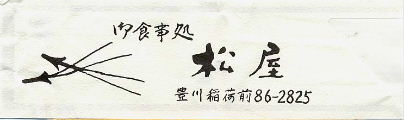 御食事処
松屋
豊川稲荷前86-2825